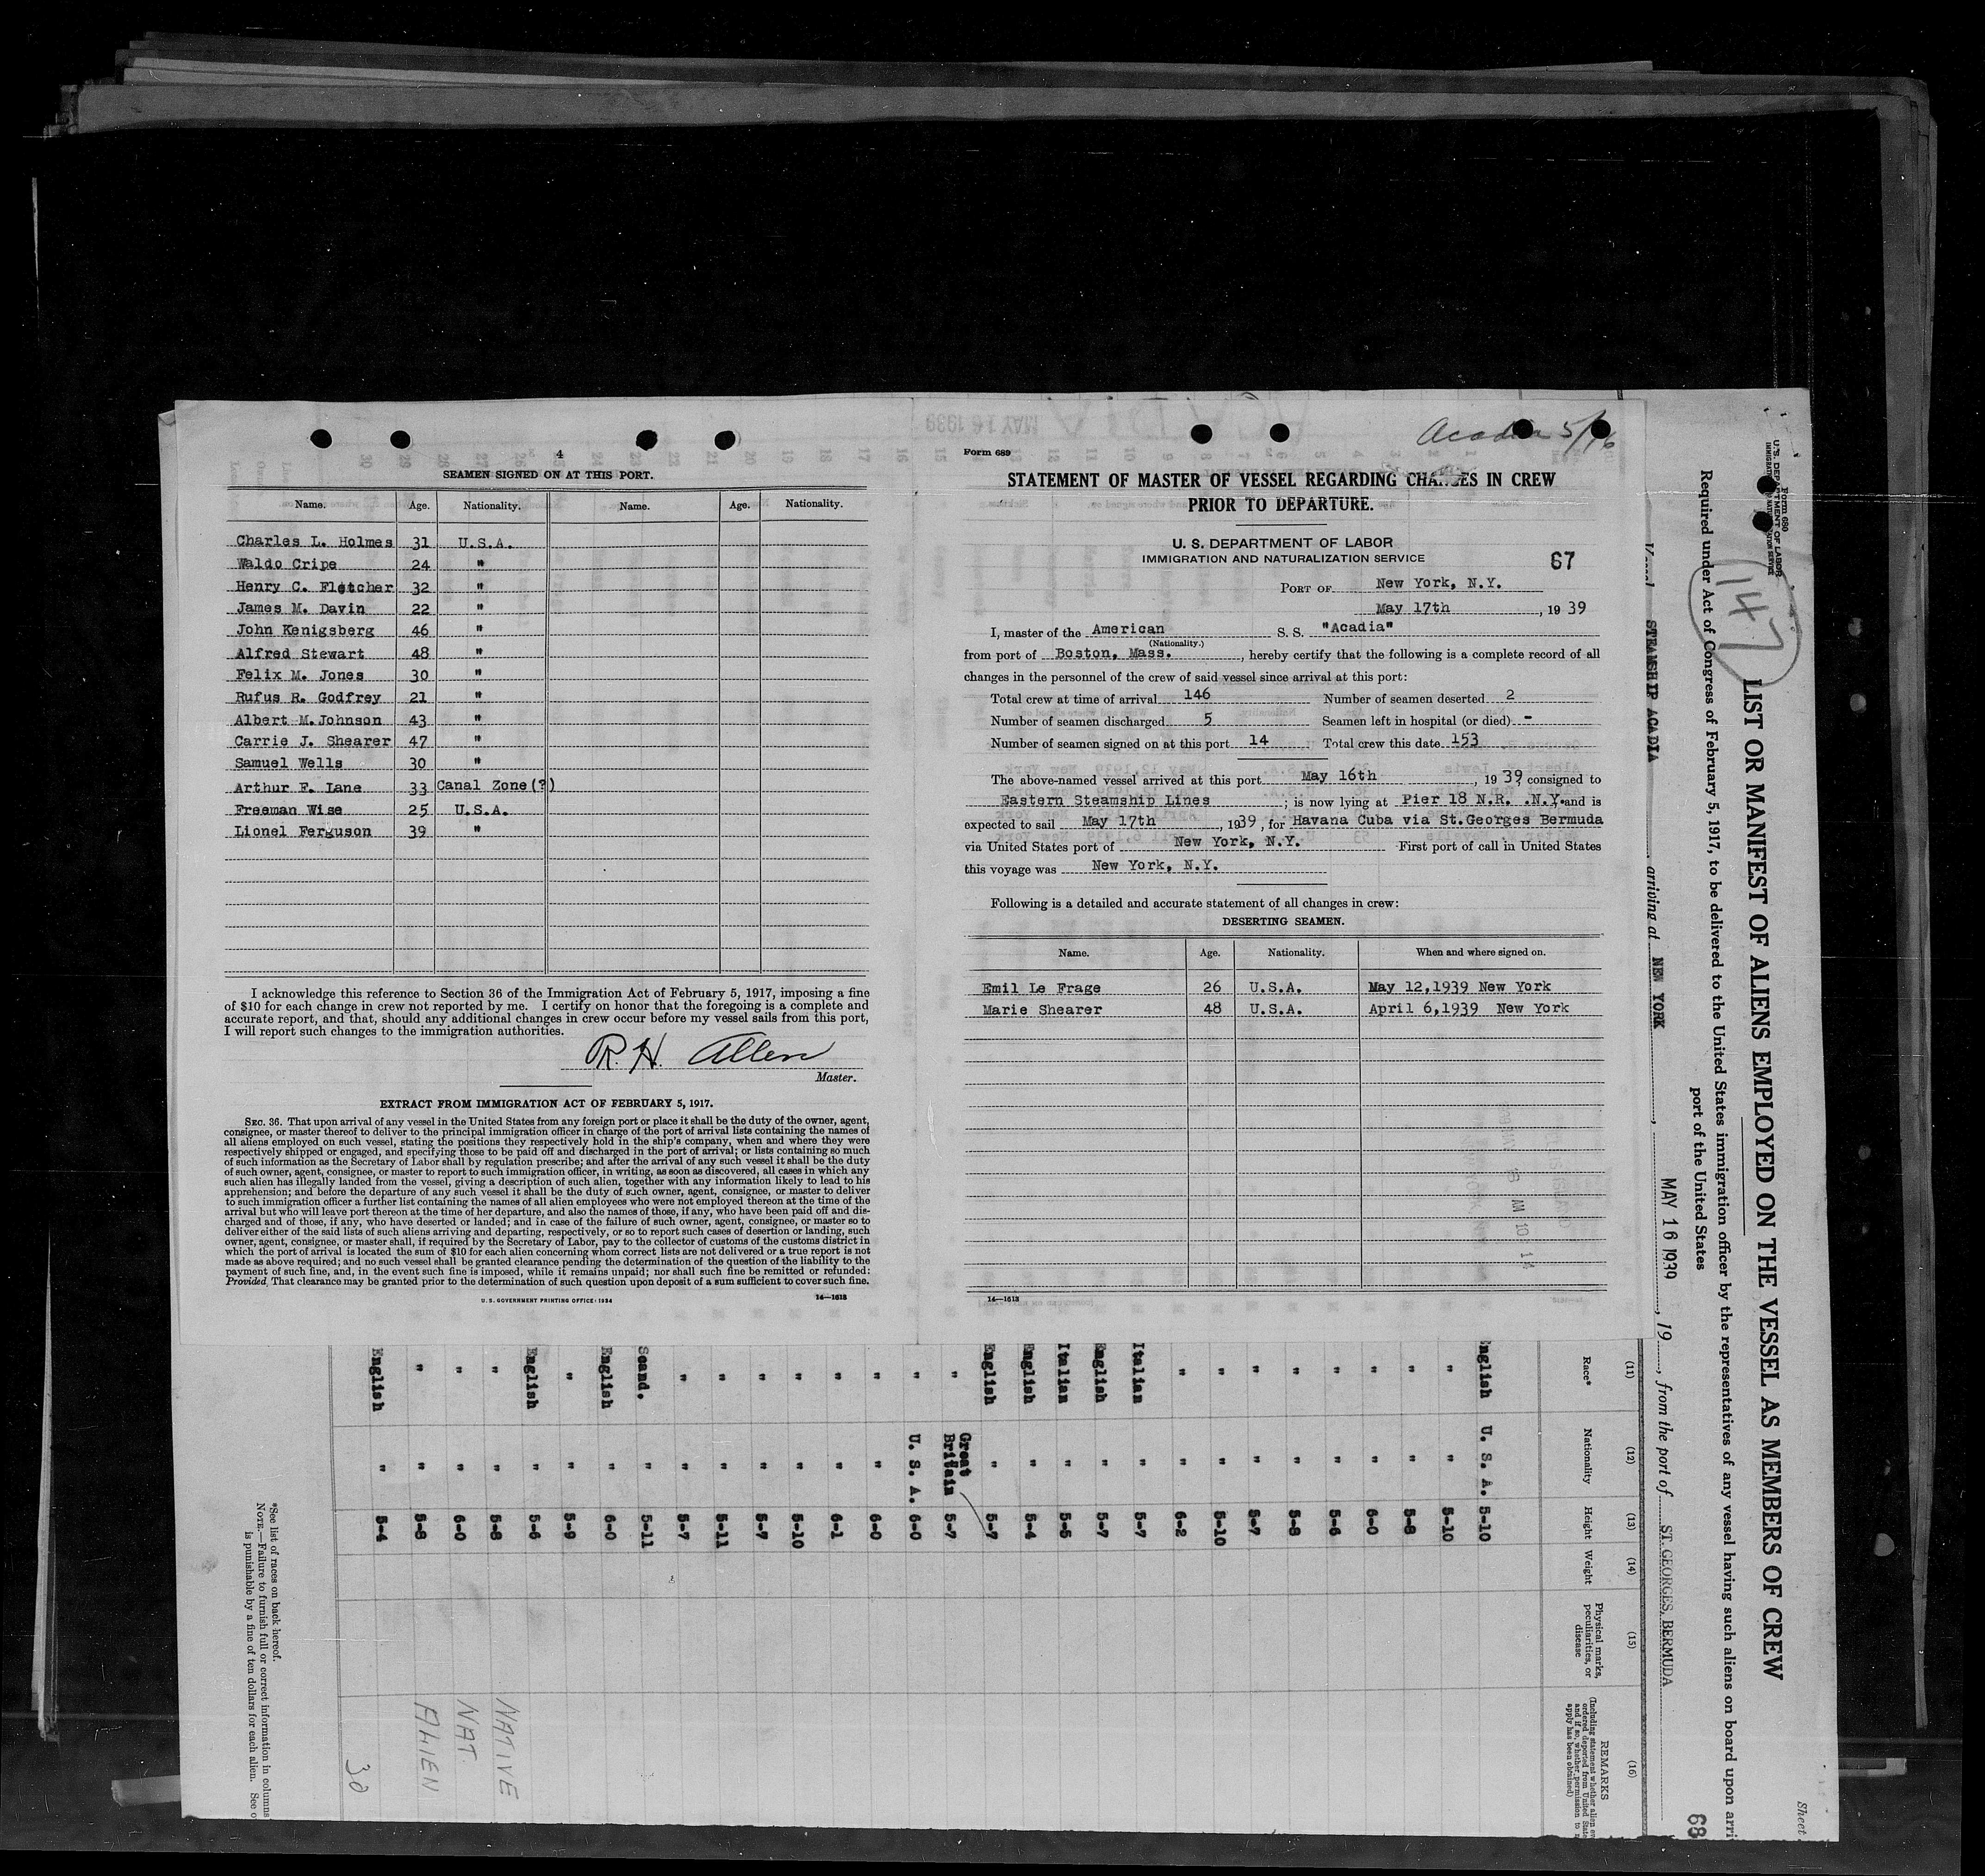 4
SEAMEN SIGNED ON AT THIS PORT.
Name. Age. Nationality. Name. Age. Nationality.
Charles L. Holmes 31 U.S.A.
Waldo Cripe 24 "
Henry C. Fletcher 32 "
James M. Davin 22 "
John Kenigsberg 46 "
Alfred Stewart 48 "
Felix M. Jones 30 "
Rufus R. Godfrey 21 "
Albert M. Johnson 43 "
Carrie J. Shearer 47 "
Samuel Wells 30 "
Arthur F. Lane 33 Canal Zone(?)
Freeman Wise 25 U.S.A.
Lionel Ferguson 39 "
I acknowledge this reference to Section 36 of the Immigration Act of February 5, 1917, imposing a fine
of $10 for each change in crew not reported by me. I certify on honor that the foregoing is a complete and
accurate report, and that, should any additional changes in crew occur before my vessel sails from this port,
I will report such changes to the immigration authorities.
R. H. Allen
Master.
EXTRACT FROM IMMIGRATION ACT OF FEBRUARY 5, 1917.
SEC. 36. That upon arrival of any vessel in the United States from any foreign port or place it shall be the duty of the owner, agent,
consignee, or master thereof to deliver to the principal immigration officer in charge of the port of arrival lists containing the names of
all aliens employed on such vessel, stating the positions they respectively hold in the ship's company, when and where they were
respectively shipped or engaged, and specifying those to be paid off and discharged in the port of arrival; or lists containing so much
of such information as the Secretary of Labor shall by regulation prescribe; and after the arrival of any such vessel it shall be the duty
of such owner, agent, consignee, or master to report to such immigration officer, in writing, as soon as discovered, all cases in which any
such alien has illegally landed from the vessel, giving a description of such alien, together with any information likely to lead to his
apprehension; and before the departure of any such vessel it shall be the duty of such owner, agent, consignee, or master to deliver
to such immigration officer a further list containing the names of all alien employees who were not employed thereon at the time of the
arrival but who will leave port thereon at the time of her departure, and also the names of those, if any, who have been paid off and dis-
charged and of those, if any, who have deserted or landed; and in case of the failure of such owner, agent, consignee, or master so to
deliver either of the said lists of such aliens arriving and departing, respectively, or so to report such cases of desertion or landing, such
owner, agent, consignee, or master shall, if required by the Secretary of Labor, pay to the collector of customs of the customs district in
which the port of arrival is located the sum of $10 for each alien concerning whom correct lists are not delivered or a true report is not
made as above required; and no such vessel shall be granted clearance pending the determination of the question of the liability to the
payment of such fine, and, in the event such fine is imposed, while it remains unpaid; nor shall such fine be remitted or refunded:
Provided, That clearance may be granted prior to the determination of such question upon deposit of a sum sufficient to cover such fine.
U. S. GOVERNMENT PRINTING OFFICE: 1934 14—1613
Acadia 5/16
Form 689
STATEMENT OF MASTER OF VESSEL REGARDING CHANGES IN CREW
PRIOR TO DEPARTURE.
U. S. DEPARTMENT OF LABOR
IMMIGRATION AND NATURALIZATION SERVICE
67
PORT OF New York, N.Y.
May 17th, 1939
I, master of the American S. S. "Acadia"
(Nationality.)
from port of Boston, Mass., hereby certify that the following is a complete record of all
changes in the personnel of the crew of said vessel since arrival at this port:
Total crew at time of arrival 146 Number of seamen deserted 2
Number of seamen discharged 5 Seamen left in hospital (or died) -
Number of seamen signed on at this port 14 Total crew this date 153
The above-named vessel arrived at this port May 16th, 1939, consigned to
Eastern Steamship Lines; is now lying at Pier 18 N.R. .N.Y. and is
expected to sail May 17th, 1939, for Havana Cuba via St.Georges Bermuda
via United States port of New York, N.Y. First port of call in United States
this voyage was New York, N.Y.
Following is a detailed and accurate statement of all changes in crew:
DESERTING SEAMEN.
Name. Age. Nationality. When and where signed on.
Emil Le Frage 26 U.S.A. May 12,1939 New York
Marie Shearer 48 U.S.A. April 6,1939 New York
14—1613
Sheet
Form 680
U.S. DEPARTMENT OF LABOR
147
LIST OR MANIFEST OF ALIENS EMPLOYED ON THE VESSEL AS MEMBERS OF CREW
Required under Act of Congress of February 5, 1917, to be delivered to the United States immigration officer by the representatives of any vessel having such aliens on board upon arri
port of the United States
68
Vessel STEAMSHIP ACADIA, arriving at NEW YORK, MAY 16 1939, 19, from the port of ST. GEORGES, BERMUDA
(11) (12) (13) (14) (15) (16)
Race* Nationality Height Weight Physical marks, peculiarities, or disease REMARKS
English U. S. A. 5-10
" " 5-10
" " 5-8
" " 6-0
" " 5-6
" " 5-8
" " 5-7
" " 5-10
" " 6-2
Italian " 5-7
English " 5-7
Italian " 5-5
English " 5-4
English " 5-7
" Great Britain 5-7
" U. S. A. 6-0
" " 6-0
" " 6-1
" " 5-10
" " 5-7
" " 5-11
" " 5-7
Scand. " 5-11
English " 6-0
" " 5-9
English " 5-6
" " 5-8 NATIVE
" " 6-0 NAT.
" " 5-8 ALIEN
English " 5-4
30
*See list of races on back hereof.
NOTE.—Failure to furnish full or correct information in columns
is punishable by a fine of ten dollars for each alien. See